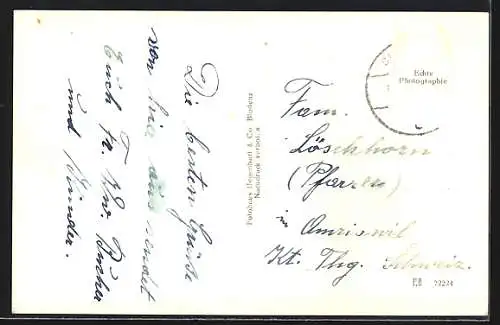 Die besten Grüße
von hier aus sendet
Euch Fr. Ww. Bucher
und Kinder.
Fotohaus & Co. Bludenz
Nachdruck verboten
Echte
Photographie
Fam.
Löschhorn
(Pfarrer)
in Amriswil
Kt. Thg. Schweiz.